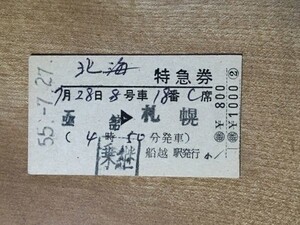 北海 特急券
7月28日8号車18番C席
函館▶札幌
(4時50分発車)
乗継 船越駅発行
55.-7.27.
800
1000 ②